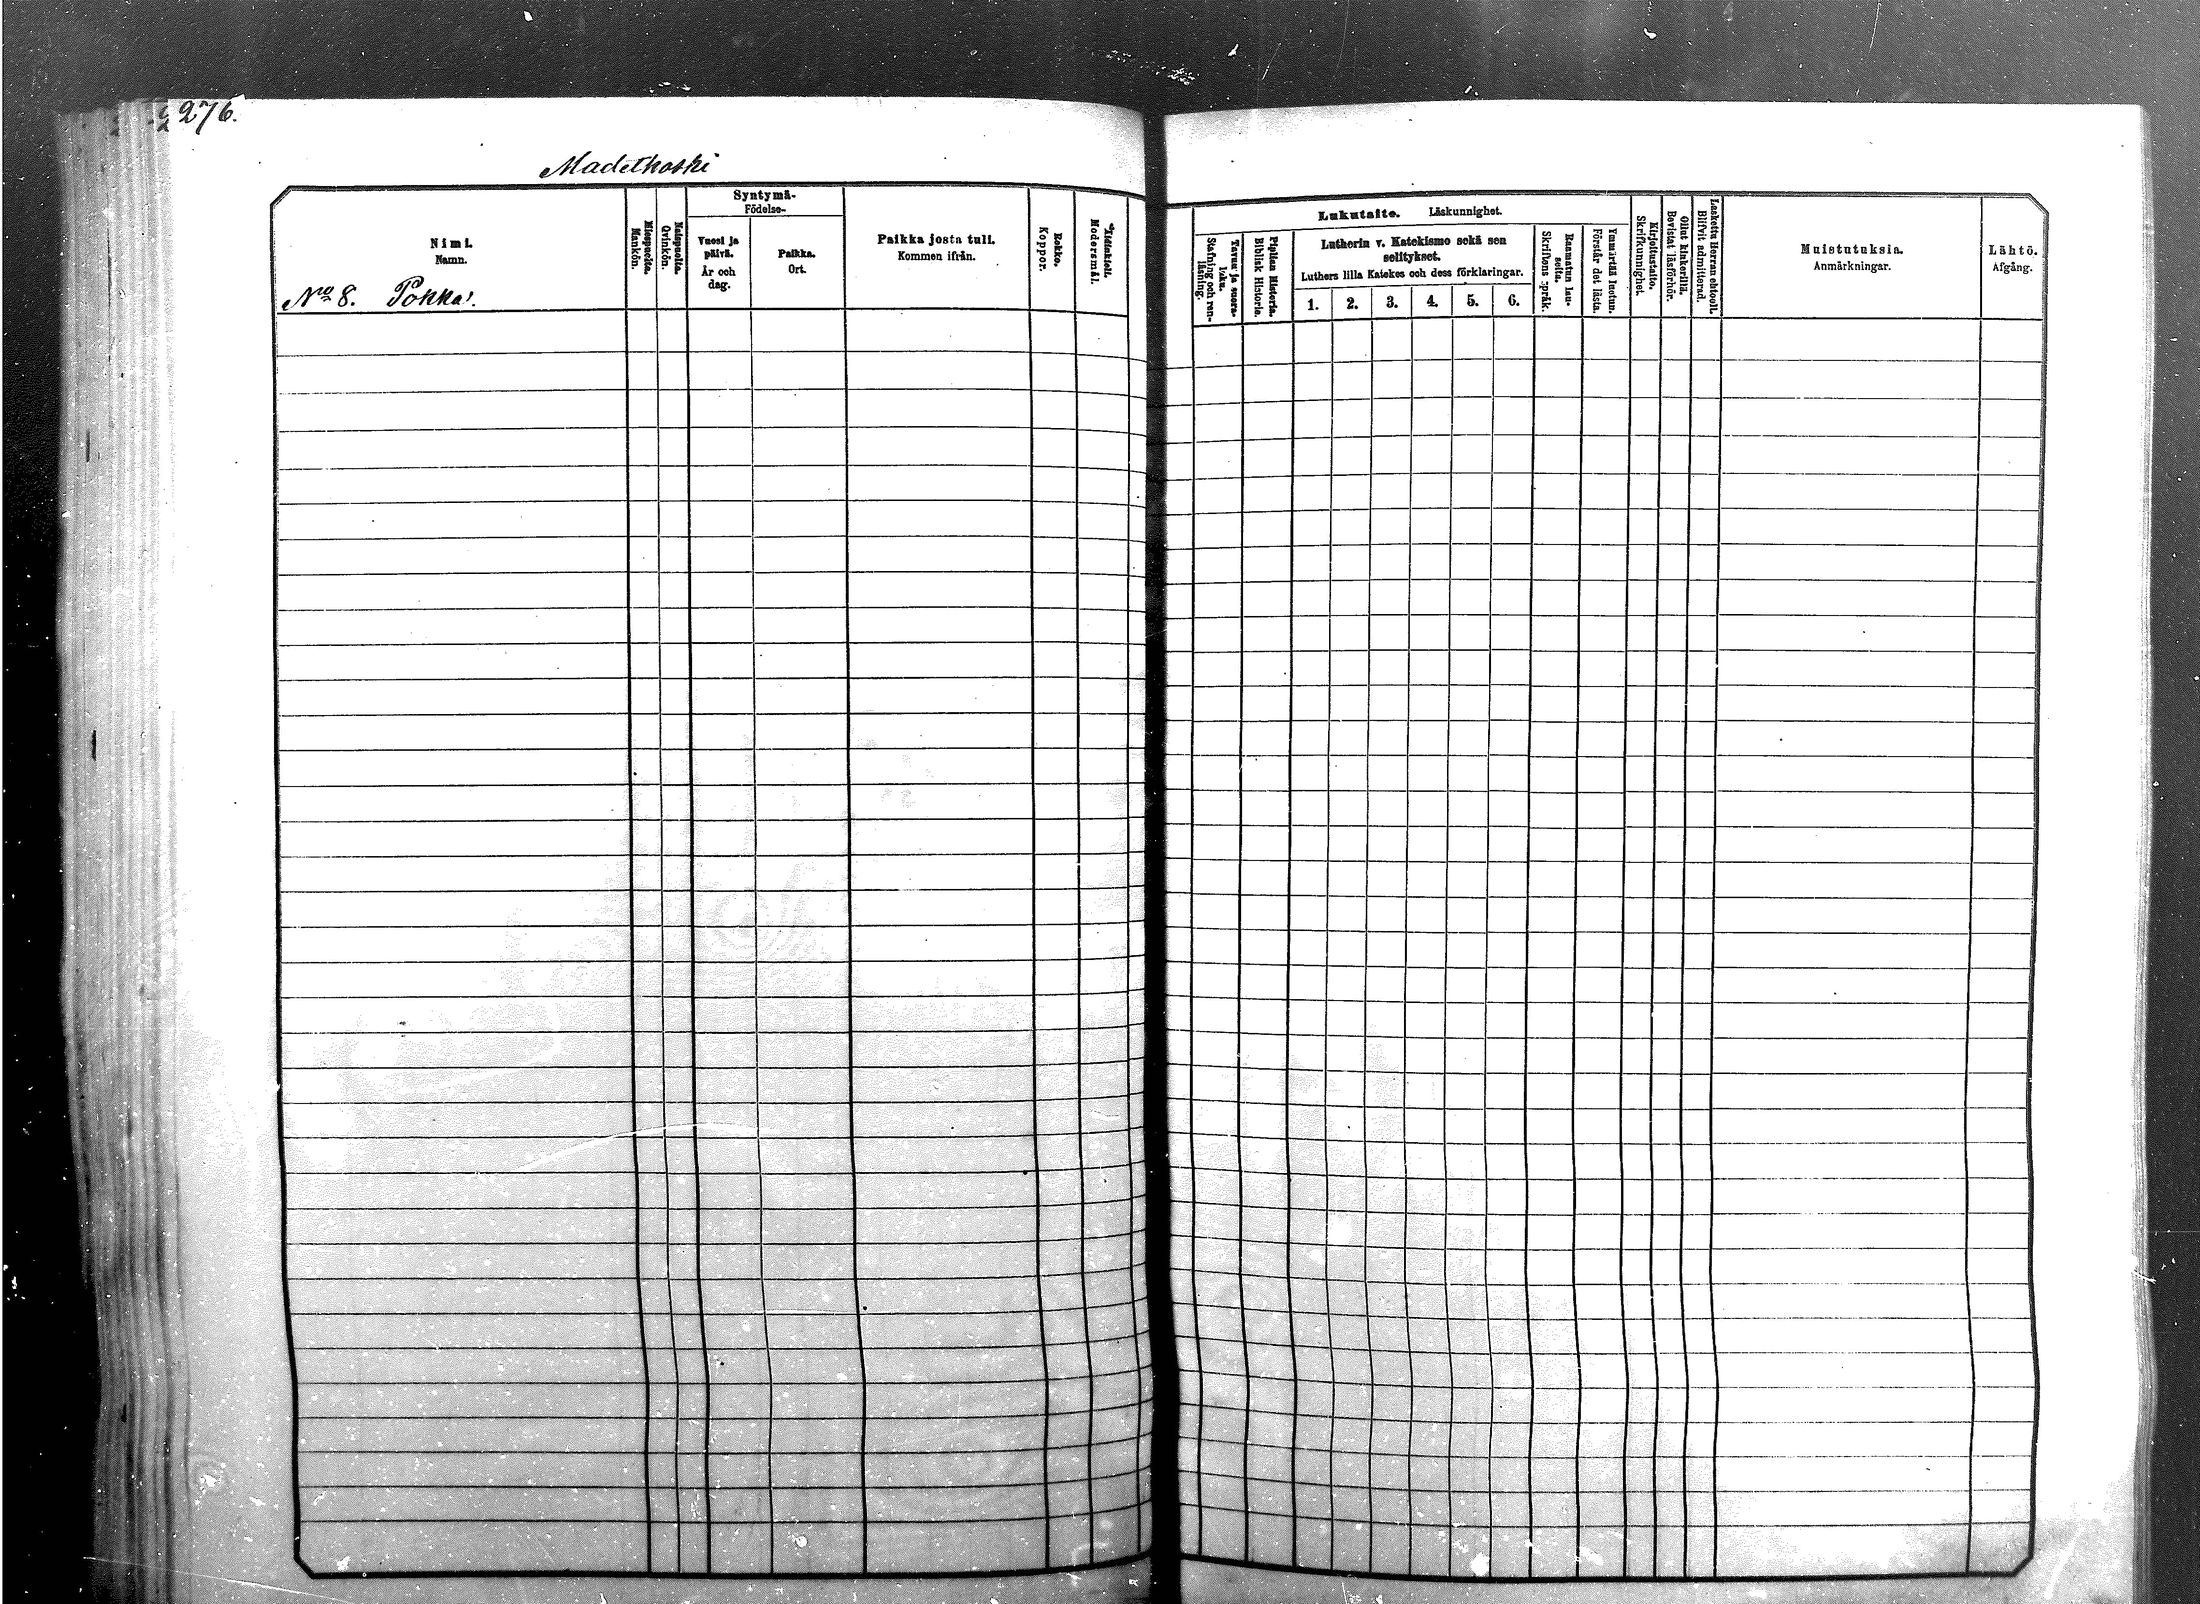 276.
Madetkoski
Nimi.
Namn.
No 8. Pokka.
Miespuolta.
Mankön.
Naispuolta.
Qvinkön.
Syntymä-
Födelse-
Vuosi ja
päivä.
År och
dag.
Paikka.
Ort.
Paikka josta tuli.
Kommen ifrån.
Rokko.
Koppor.
Äidinkieli.
Modersmål.
Lukutaito. Läskunnighet.
Tavuu ja suora-
luku.
Stafning och ren-
läsning.
Piplian Historia.
Biblisk Historie.
Lutherin v. Katekismo sekä sen
selitykset.
Luthers lilla Katekes och dess förklaringar.
1. 2. 3. 4. 5. 6.
Raamatun lau-
seita.
Skriftens språk.
Ymmärtää luetun.
Förstår det lästa.
Kirjoitustaito.
Skrifkunnighet.
Ollut kinkerillä.
Bevistat läsförhör.
Laskettu Herran ehtoolle.
Blifvit admitterad.
Muistutuksia.
Anmärkningar.
Lähtö.
Afgång.